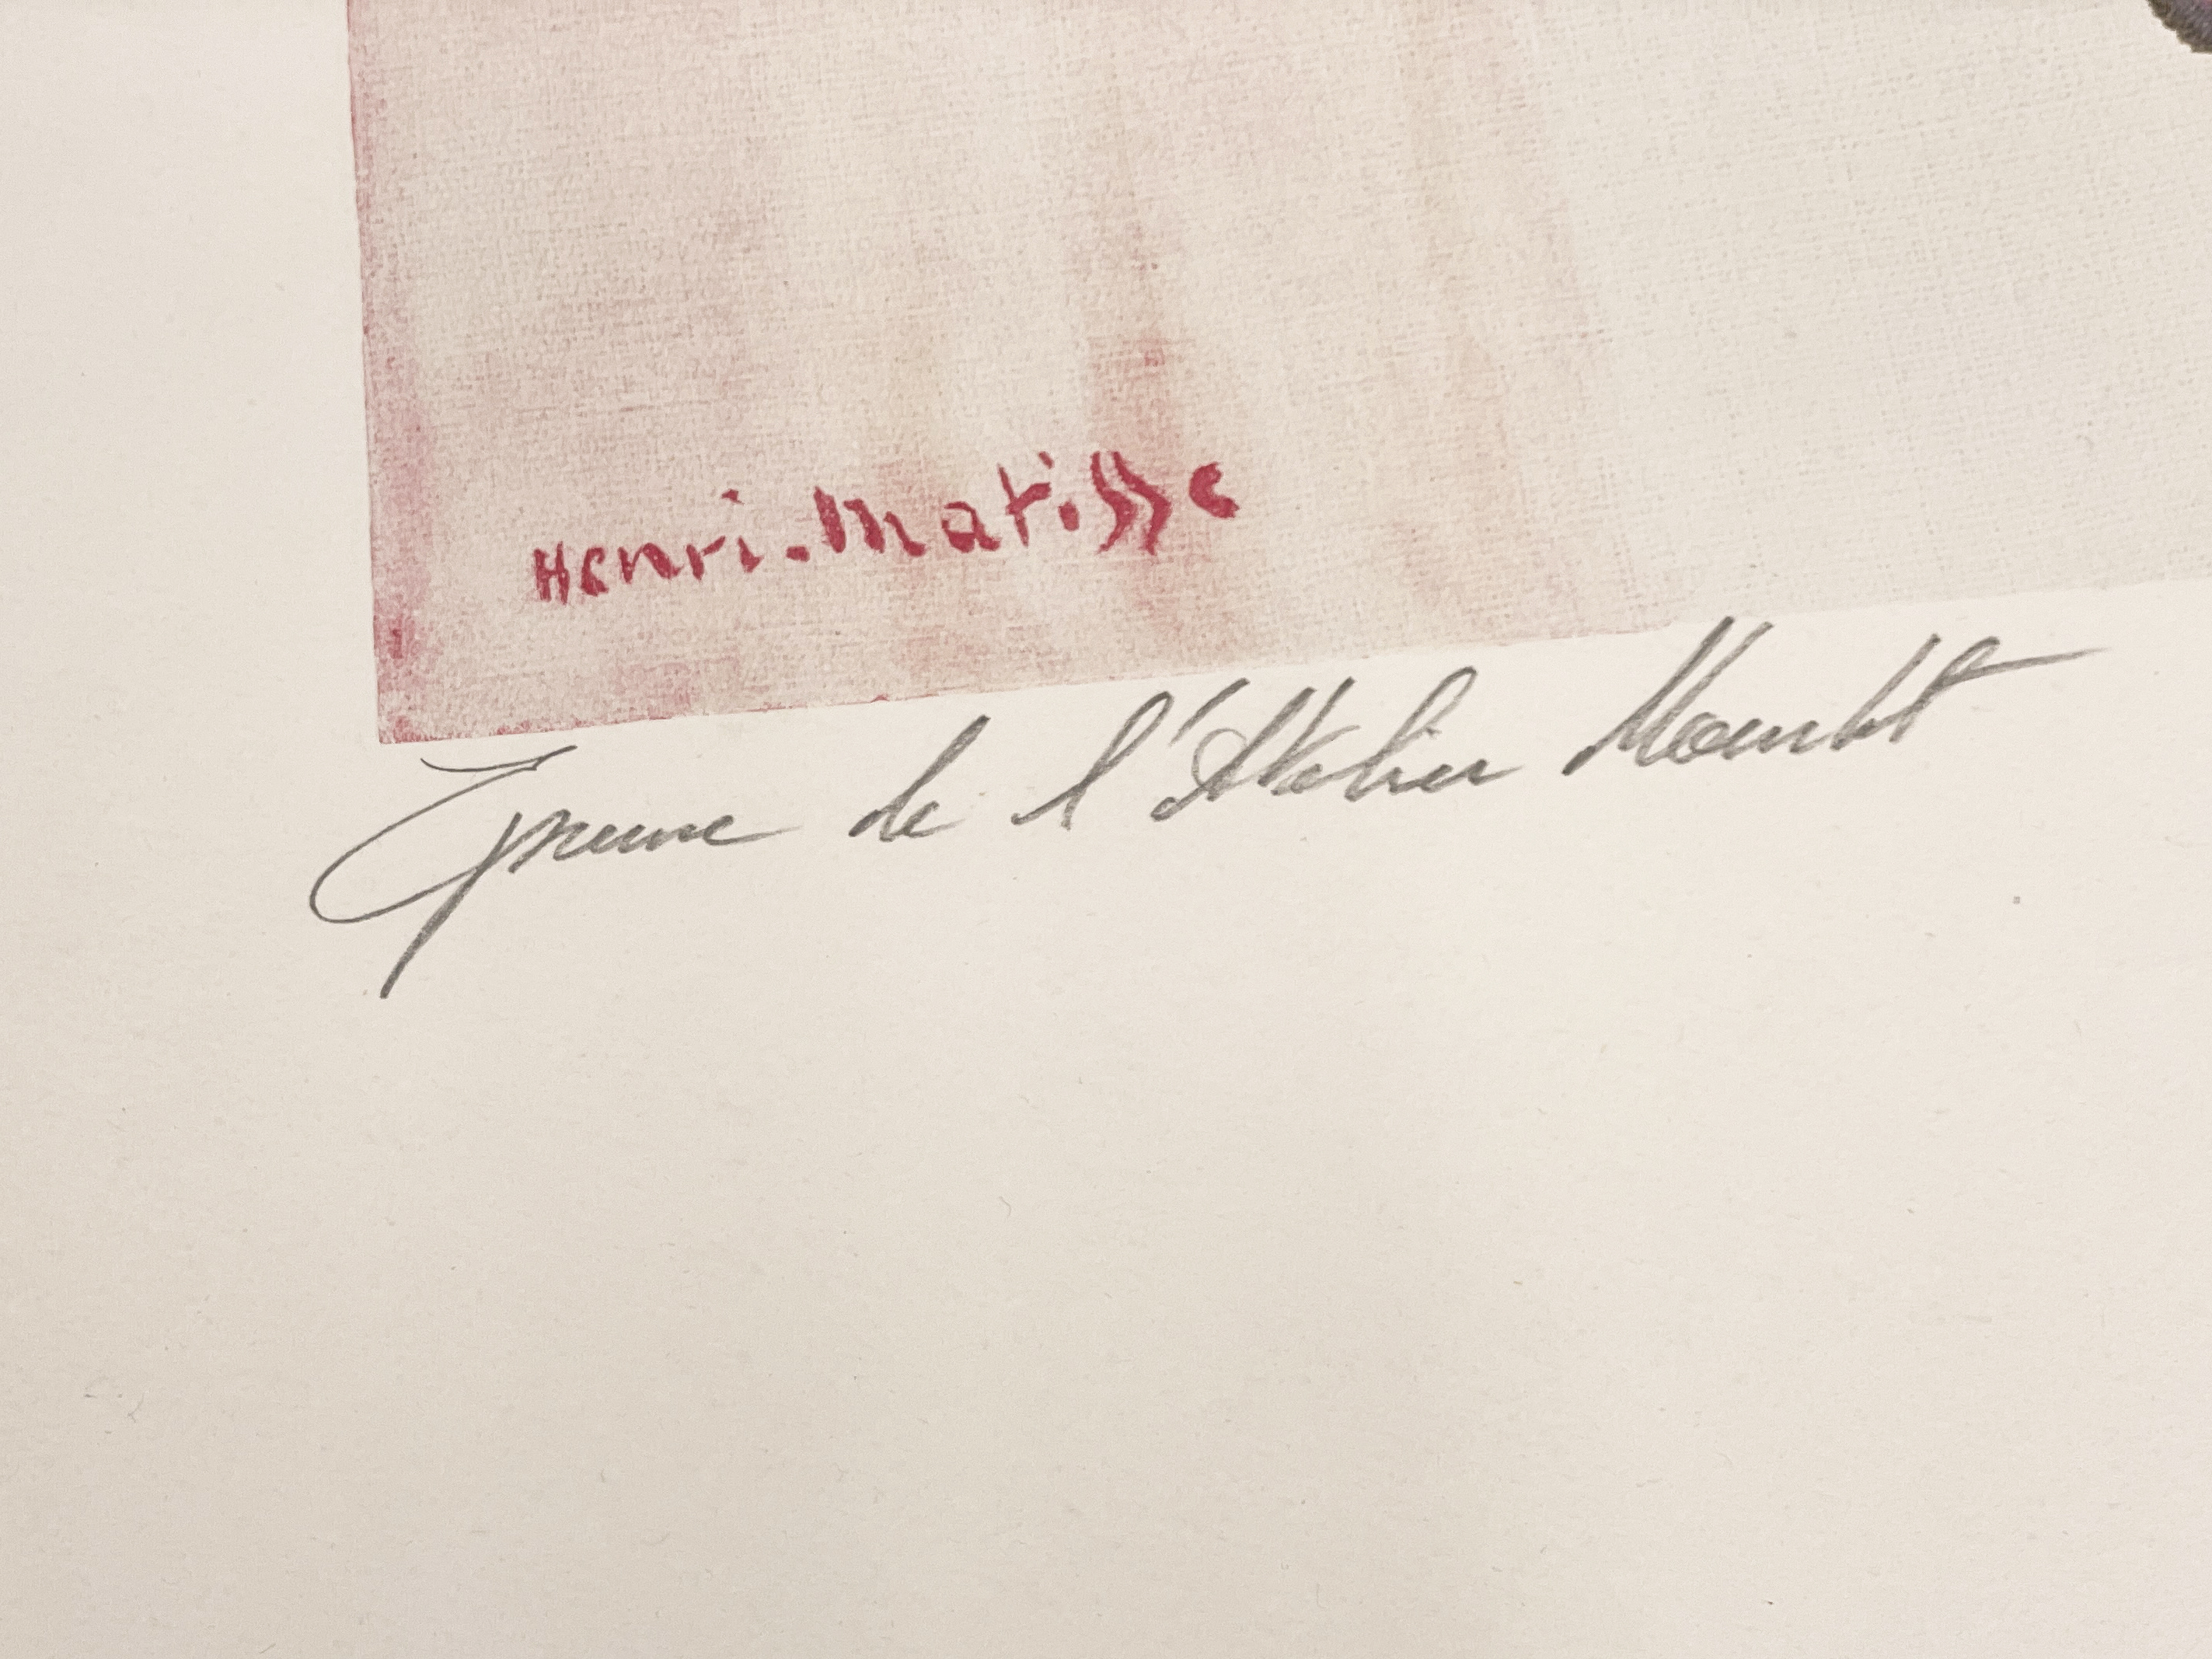 Henri-Matisse
Epreuve de l'Atelier Mourlot